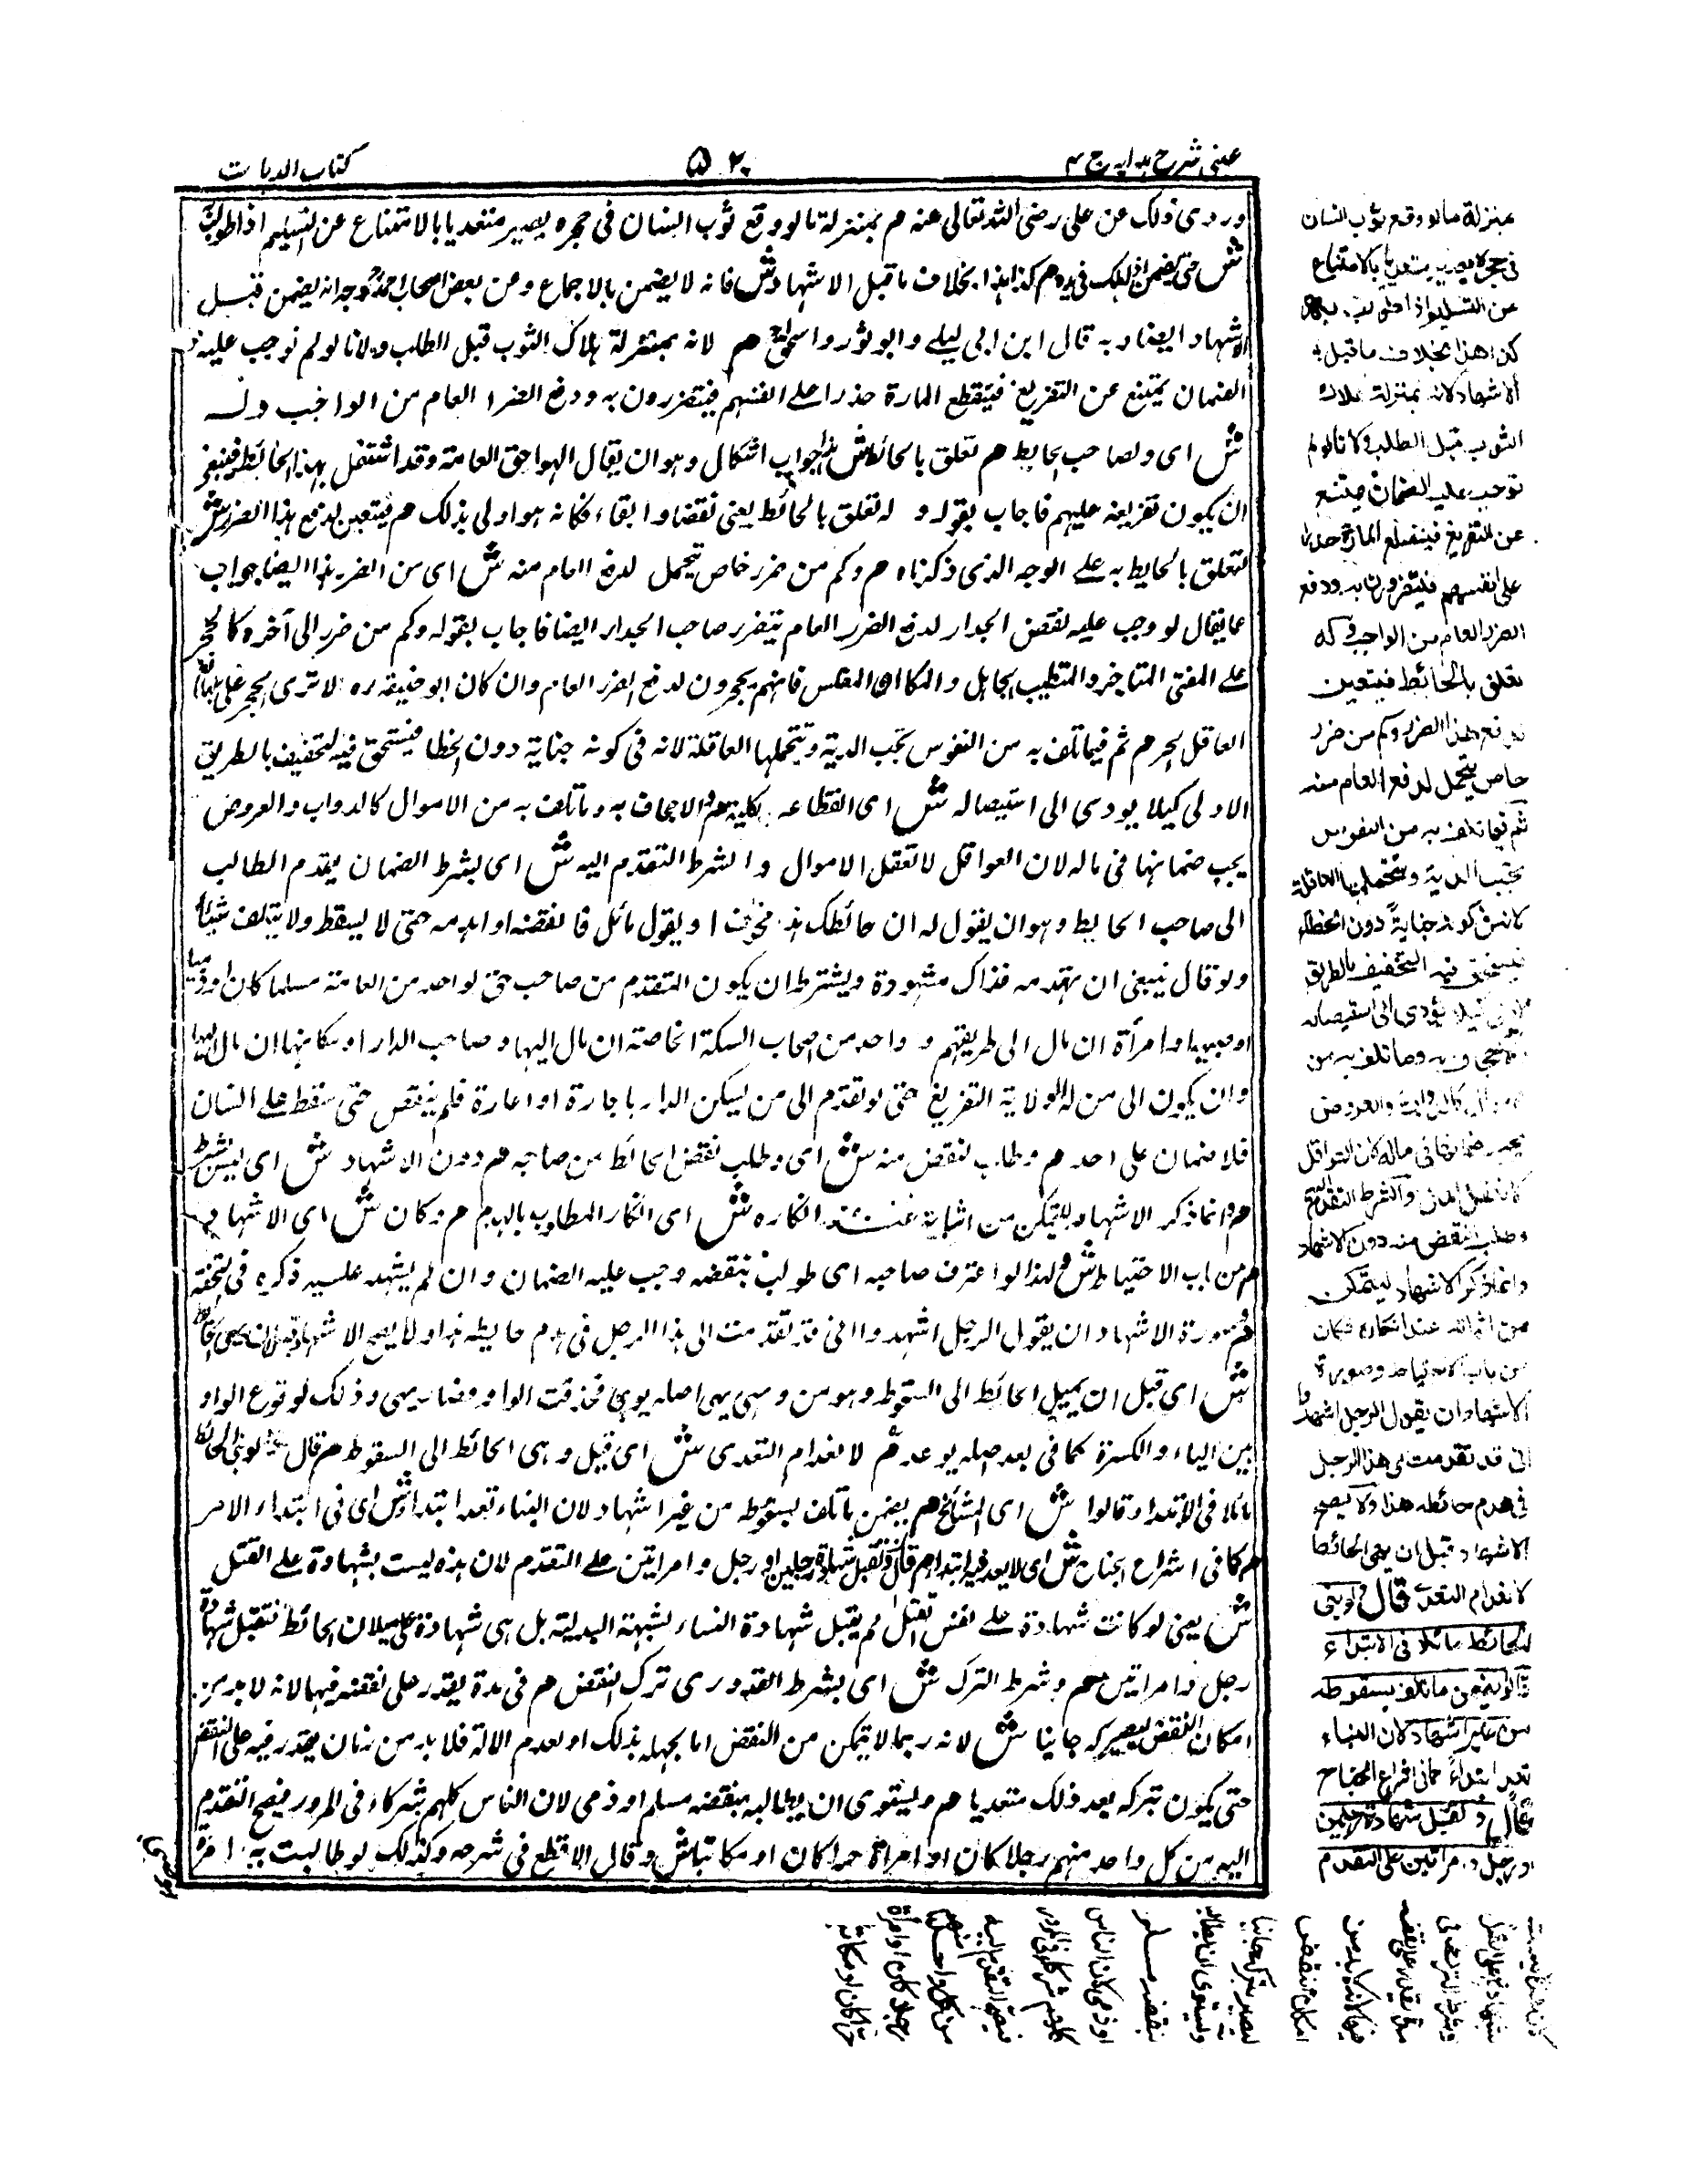 عینی شرح هدایه ج ۴
۵۲۰
کتاب الدیات
وروی ذلک عن علی رضی الله تعالی عنه م بمنزلة ما لو وقع ثوب انسان فی حجره یصیر متعدیا بالامتناع عن التسلیم اذا طولب
ش حتی یضمن اذا هلک فی یده م کذا هذا بخلاف ما قبل الاشهاد ش فانه لا یضمن بالاجماع وعن بعض اصحاب احمد وجه انه یضمن قبل
الاشهاد ایضا وبه قال ابن ابی لیلے وابو ثور واسحق م لانه بمنزلة هلاک الثوب قبل الطلب ولانا لو لم نوجب علیه
الضمان یمتنع عن التفریغ فینقطع المارة حذرا علے انفسهم فیتضررون به ودفع الضرر العام من الواجب وله
ش ای ولصاحب الحایط م تعلق بالحائط ش هذا جواب اشکال وهو ان یقال الهواء حق العامة وقد اشتغل بهذا الحائط فینبغی
ان یکون تفریغه علیهم فاجاب بقوله و له تعلق بالحائط یعنی نقضا وابقاء فکانه هو اولی بذلک م فیتعین لدفع هذا الضرر ش
لتعلق بالحایط به علے الوجه الذی ذکرناه م وکم من ضرر خاص یتحمل لدفع العام منه ش ای من الضرر هذا ایضا جواب
عما یقال لو وجب علیه نقض الجدار لدفع الضرر العام یتضرر صاحب الجدار ایضا فاجاب بقوله وکم من ضرر الی آخره کالحجر
علے المفتی الماجن والمتطبب الجاهل والمکاری المفلس فانهم یحجرون لدفع الضرر العام وان کان ابو حنیفة ره لا یری الحجر علی
العاقل الحر م ثم فیما تلف به من النفوس تجب الدیة وتتحملها العاقلة لانه فی کونه جنایة دون الخطا فیستحق فیه التخفیف بالطریق
الاولی کیلا یودی الی استیصاله ش ای انقطاعه بکلیته م والاجحاف به وما تلف به من الاموال کالدواب والعروض
یجب ضمانها فی ماله لان العواقل لا تعقل الاموال والشرط التقدم الیه ش ای بشرط الضمان یتقدم الطالب
الی صاحب الحایط وهو ان یقول له ان حائطک هذا مخوف او یقول مائل فانقضه او اهدمه حتی لا یسقط ولا یتلف شیئا
ولو قال ینبغی ان تهدمه فذاک مشورة ویشترط ان یکون التقدم من صاحب حق لواحد من العامة مسلما کان او ذمیا
او صبیا او امرأة ان مال الی طریقهم و واحد من اصحاب السکة الخاصة ان مال الیها وصاحب الدار او سکانها ان مال الیها
وان یکون الی من له ولایة التفریغ حتی لو تقدم الی من یسکن الدار باجارة او اعارة فلم ینقض حتی سقط علے انسان
فلا ضمان علی احد م وطلب النقض منه ش ای وطلب نقض الحائط من صاحبه م دون الاشهاد ش ای لیس بشرط
م وانما ذکر الاشهاد لیتمکن من اثباته عند انکاره ش ای انکار المطلوب بالهدم م وکان ش ای الاشهاد
م من باب الاحتیاط ش ولهذا لو اعترف صاحبه ای طولب بنقضه وجب علیه الضمان وان لم یشهد علیه ذکره فی التحفة
م وصورة الاشهاد ان یقول الرجل اشهدوا انی قد تقدمت الی هذا الرجل فی هدم حایطه هذا ولا یصح الاشهاد قبل ان یهی الحائط
ش ای قبل ان یمیل الحائط الی السقوط وهو من وهی یهی اصله یوهی فحذفت الواو فصار یهی وذلک لوقوع الواو
بین الیاء والکسرة کما فی یعد اصله یوعد م لانعدام التعدی ش ای قبل وهی الحائط الی السقوط م قال ولو بنی الحائط
مائلا فی الابتداء وقالوا ش ای المشایخ م یضمن ما تلف بسقوطه من غیر اشهاد لان البناء تعد ابتداء ش ای فی ابتداء الامر
م کما فی اشراع الجناح ش ای لا یعد فیه ابتداء م قال وتقبل شهادة رجلین او رجل وامراتین علے التقدم لان هذه لیست بشهادة علے القتل
ش یعنی لو کانت شهادة علے نفس القتل لم یقبل شهادة النساء لشبهة البدلیة بل هی شهادة علی میلان الحائط فتقبل شهادة
رجل وامراتین م وشرط الترک ش ای بشرط القدوری ترک النقض م فی مدة یقدر علی نقضه فیها لانه لا بد من
امکان النقض لیصیر بترکه جانیا ش لانه ربما لا یتمکن من النقض اما بجهله بذلک او لعدم الالة فلا بد من زمان یقدر فیه علی النقض
حتی یکون بترکه بعد ذلک متعدیا م ویستوی ان یطالبه بنقضه مسلم او ذمی لان الناس کلهم شرکاء فی المرور فیصح التقدم
الیه من کل واحد منهم رجلا کان او امراة حرا کان او مکاتبا ش وقال الاقطع فی شرحه وکذلک لو طالبت به امرأة
بمنزلة ما لو وقع ثوب انسان
فی حجره یصیر متعدیا بالامتناع
عن التسلیم اذا طولب به
کذا هذا بخلاف ما قبل
الاشهاد لانه بمنزلة هلاک
الثوب قبل الطلب ولانا لو لم
نوجب علیه الضمان یمتنع
عن التفریغ فینقطع المارة حذرا
علی انفسهم فیتضررون به ودفع
الضرر العام من الواجب وله
تعلق بالحائط فیتعین
لدفع هذا الضرر وکم من ضرر
خاص یتحمل لدفع العام منه
ثم فیما تلف به من النفوس
تجب الدیة وتتحملها العاقلة
لانه فی کونه جنایة دون الخطاء
فیستحق فیه التخفیف بالطریق
الاولی کیلا یؤدی الی استیصاله
والاجحاف به وما تلف به من
الاموال کالدواب والعروض
یجب ضمانها فی ماله لان العواقل
لا تعقل المال والشرط التقدم الیه
وطلب النقض منه دون الاشهاد
وانما ذکر الاشهاد لیتمکن
من اثباته عند انکاره فکان
من باب الاحتیاط وصورة
الاشهاد ان یقول الرجل اشهدوا
انی قد تقدمت الی هذا الرجل
فی هدم حائطه هذا ولا یصح
الاشهاد قبل ان یهی الحائط
لانعدام التعدی قال ولو بنی
الحائط مائلا فی الابتداء
قالوا یضمن ما تلف بسقوطه
من غیر اشهاد لان البناء
تعد ابتداء کما فی اشراع الجناح
قال وتقبل شهادة رجلین
او رجل وامراتین علی التقدم
لان هذه لیست
شهادة علی القتل
وشرط الترک فی
مدة یقدر علی نقضه
فیها لانه لا بد من
امکان النقض
لیصیر بترکه جانیا
ویستوی ان یطالبه
بنقضه مسلم
او ذمی لان الناس
کلهم شرکاء فی المرور
فیصح التقدم الیه
من کل واحد منهم
رجلا کان او امرأة
حرا کان او مکاتبا